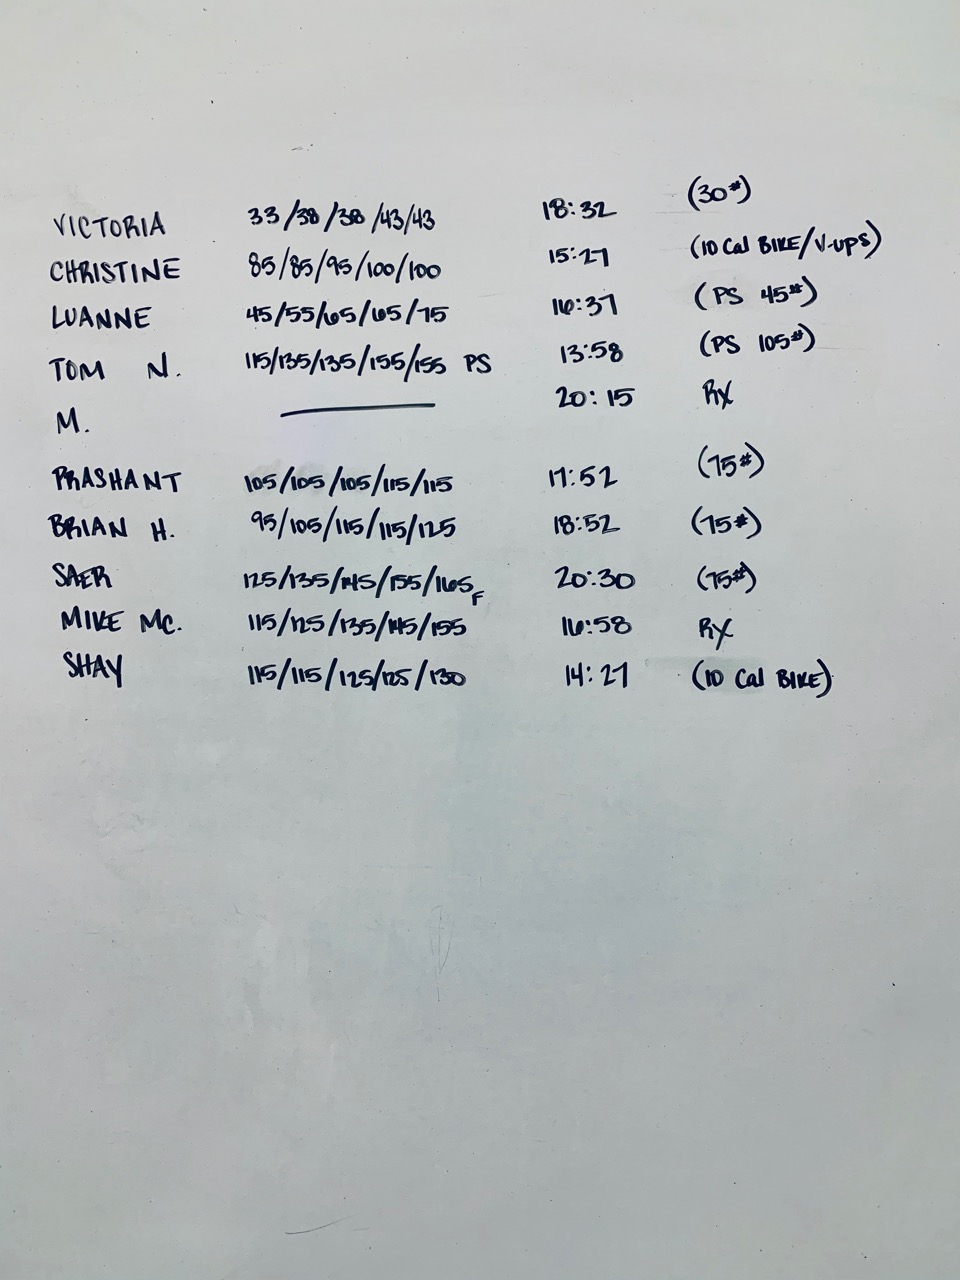 VICTORIA 33/38/38/43/43 18:32 (30#)
CHRISTINE 85/85/95/100/100 15:27 (10 Cal BIKE/V-UPS)
LUANNE 45/55/65/65/75 16:37 (PS 45#)
TOM N. 115/135/135/155/155 PS 13:58 (PS 105#)
M. — 20:15 RX
PRASHANT 105/105/105/115/115 17:52 (75#)
BRIAN H. 95/105/115/115/125 18:52 (75#)
SAER 125/135/145/155/165F 20:30 (75#)
MIKE MC. 115/125/135/145/155 16:58 RX
SHAY 115/115/125/125/130 14:27 (10 Cal BIKE)